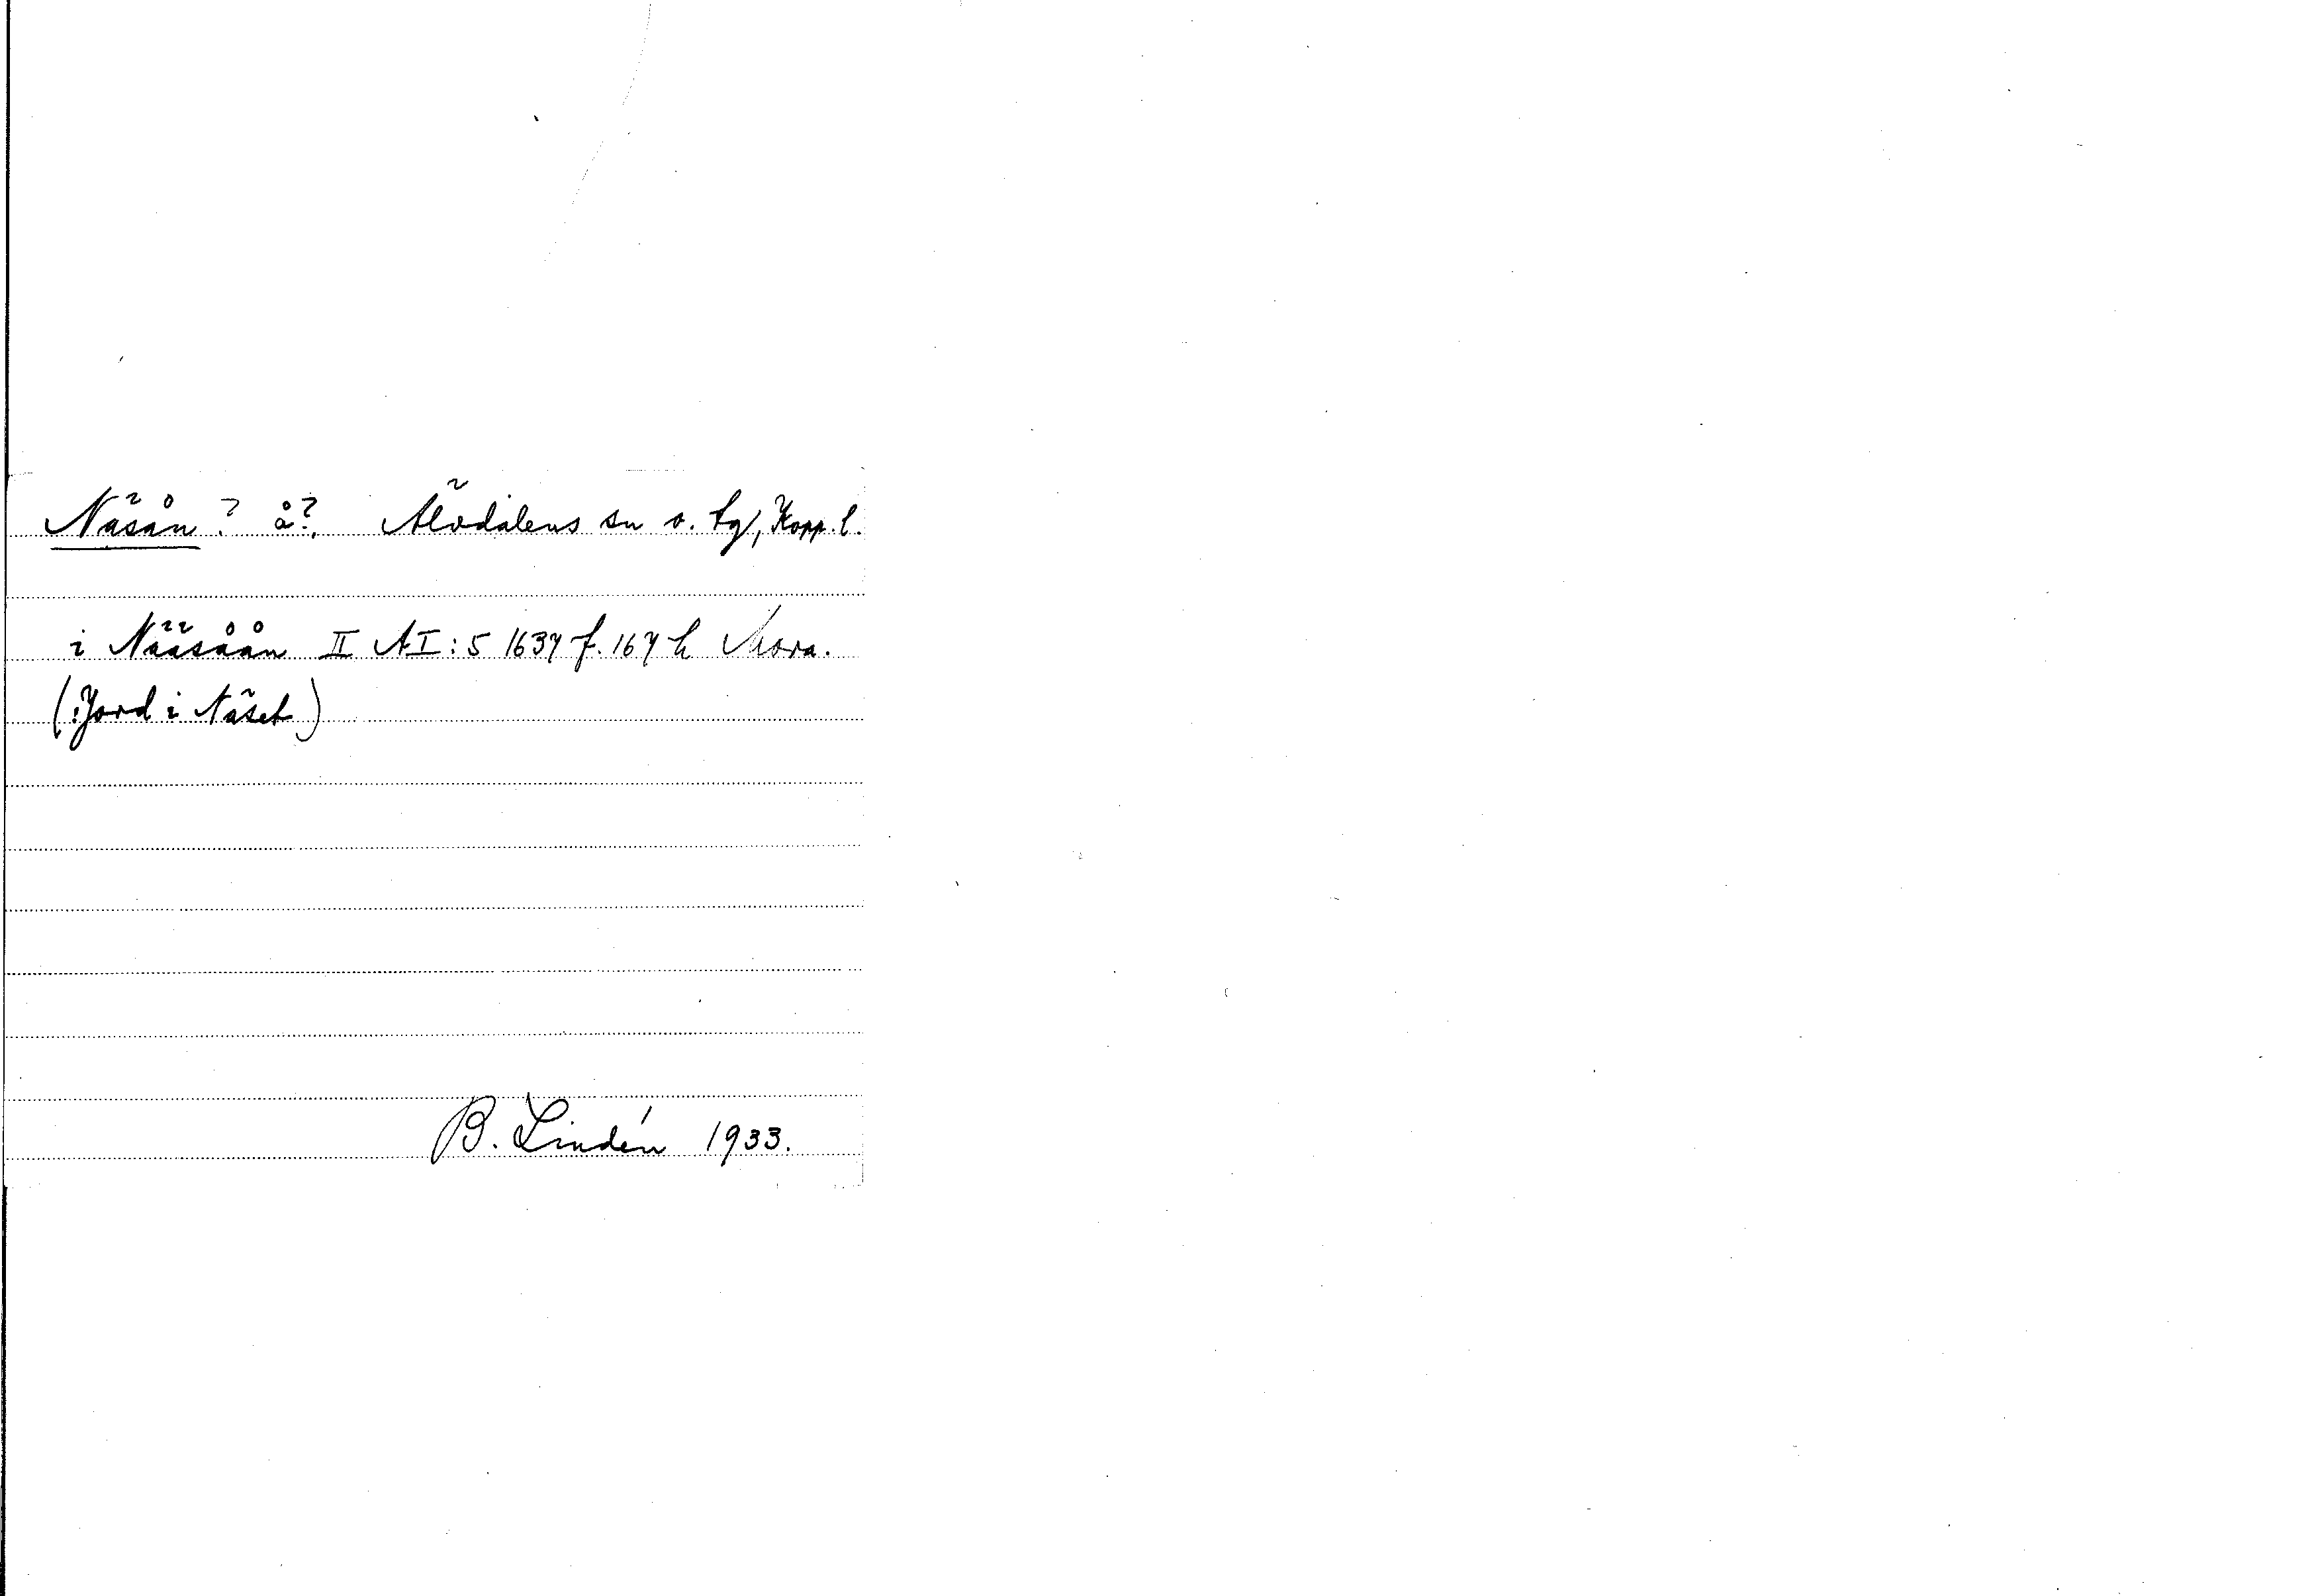 Näsån? å? Älvdalens sn o. tg, Kopp. l.
i Nääsåån II AI:5 1637 f. 167 h Mora.
(:Jord i Näset)
B. Lindén 1933.